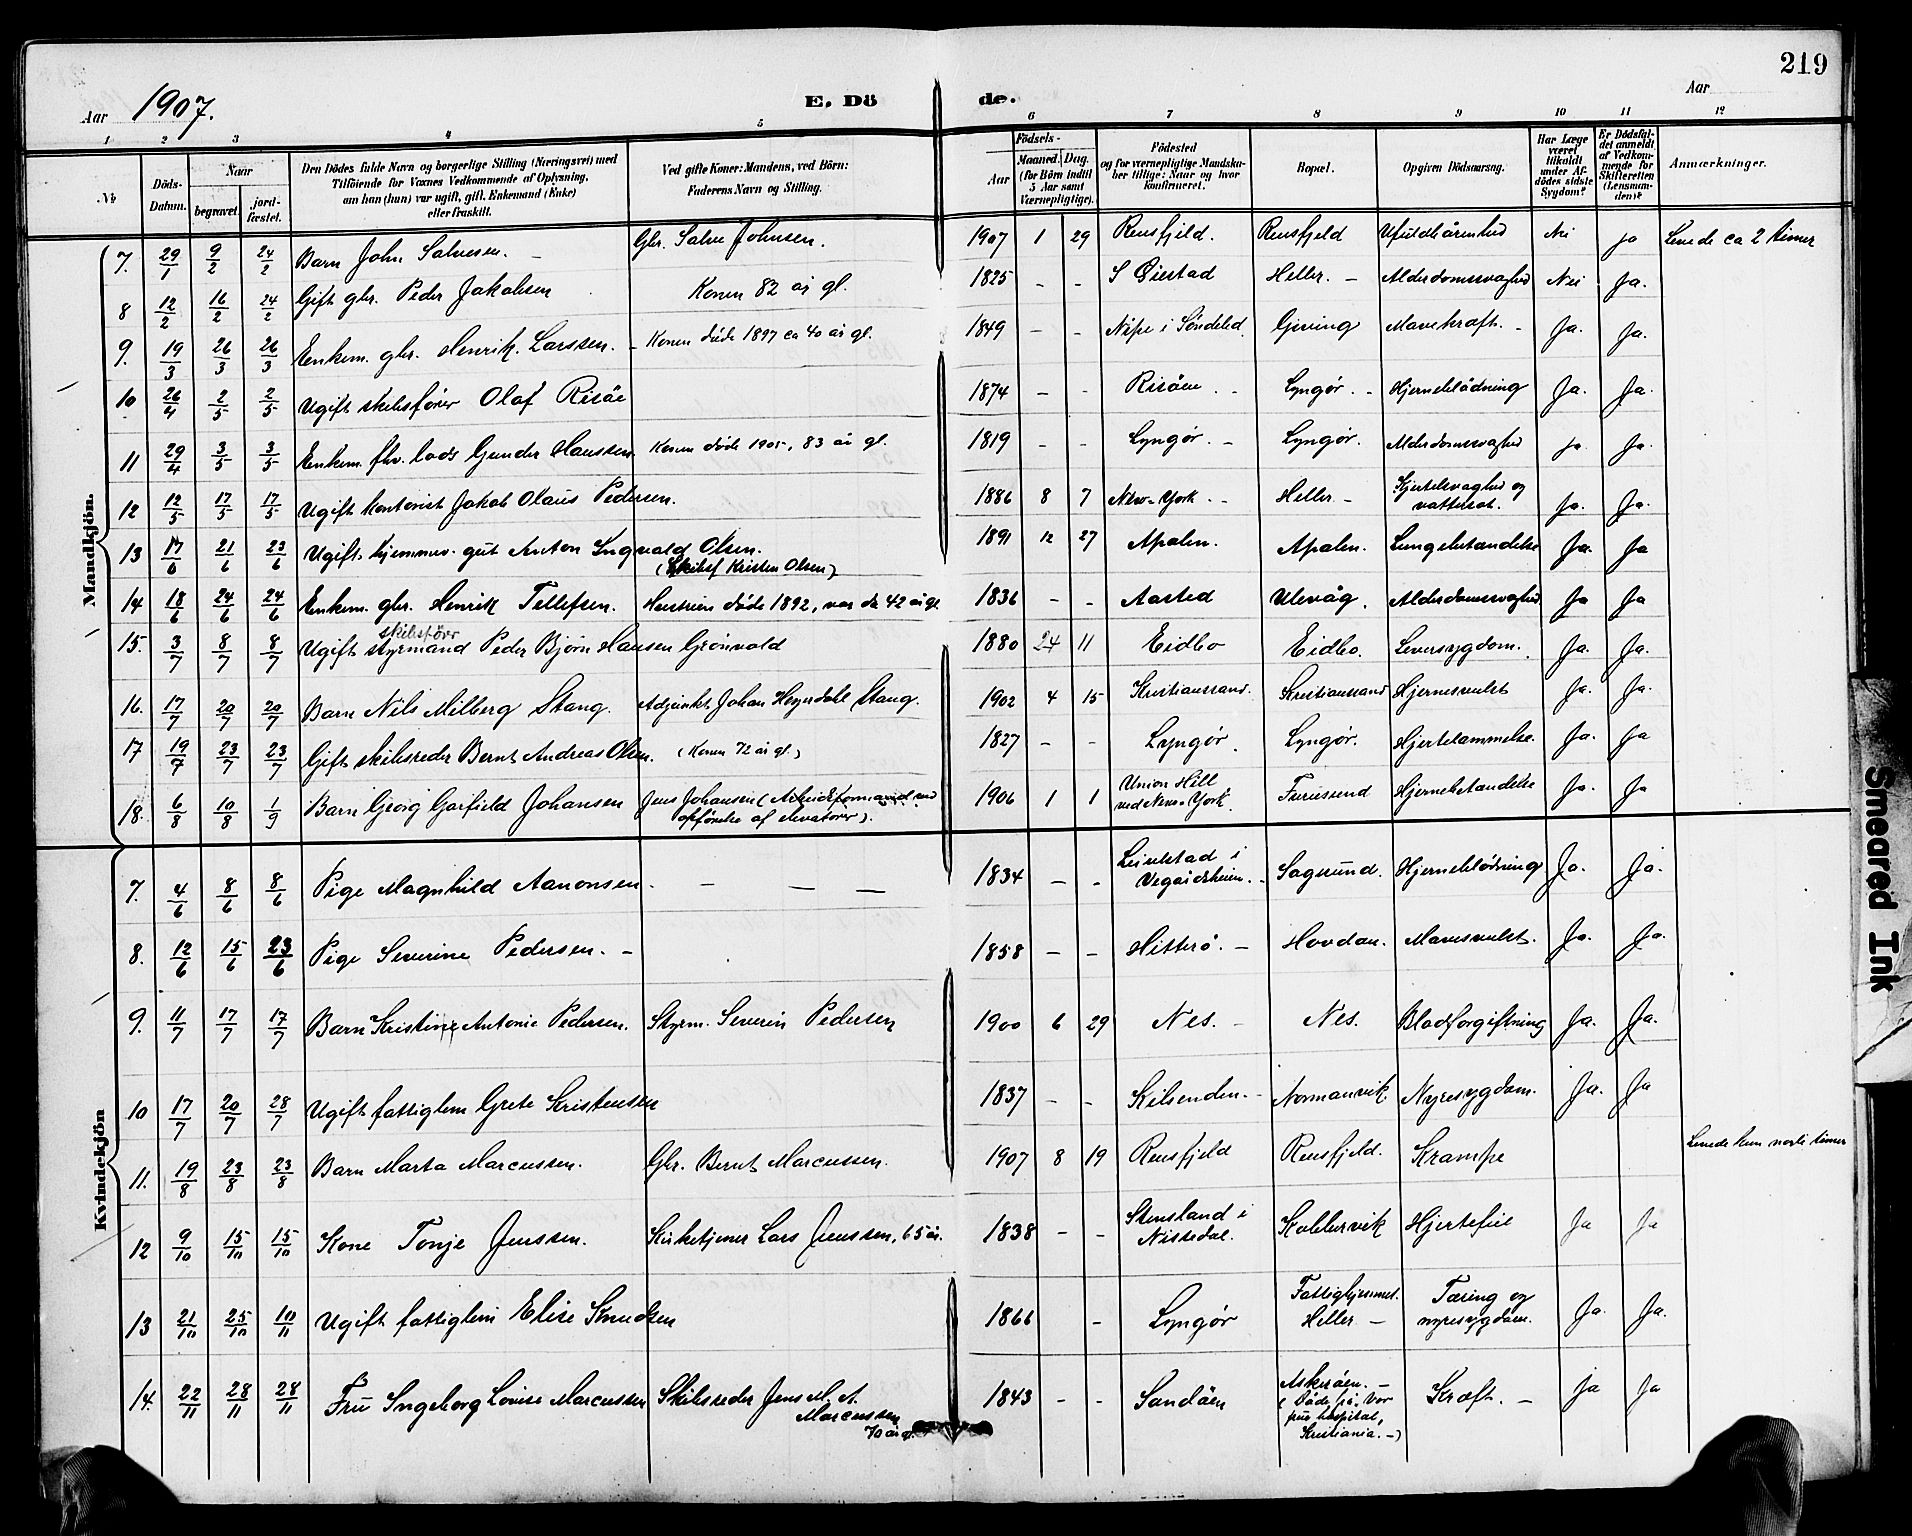 219
Aar 1907. E. Dö de. Aar
1 2 3 4 5 6 7 8 9 10 11 12
No.
Döds-Datum.
Naar
begravet.
jord-fæstet.
Den Dödes fulde Navn og borgerlige Stilling (Næringsvei) med
Tilföiende for Voxnes Vedkommende af Oplysning,
om han (hun) var ugift, gift, Enkemand (Enke)
eller fraskilt.
Ved gifte Koner: Mandens, ved Börn:
Faderens Navn og Stilling.
Födsels-
Aar
Maaned. Dag.
(for Börn indtil
5 Aar samt
Værnepligtige).
Födested
og for værnepligtige Mandska-
ber tillige: Naar og hvor
konfirmeret.
Bopæl.
Opgiven Dödsaarsag.
Har Læge
været
tilkaldt
under Af-
dödes sidste
Sygdom?
Er Dödsfal-
det anmeldt
af Vedkom-
mende for
Skifteretten
(Lensman-
den)?
Anmærkninger.
Mandkjön.
7. 29/1 9/2 24/2 Barn John Salvesen. – Gbr. Salve Johnsen. 1907 1 29 Rensfjeld. Rensfjeld Ufuldbårenhed Nei ja Levede ca 2 timer
8 12/2 16/2 24/2 Gift gbr. Peder Jakobsen Konen 82 år gl. 1825 - - S Øiestad Heller. – Alderdomssvaghed Nei Ja.
9. 19/3 26/3 26/3 Enkem. gbr. Henrik. Larssen. – Konen døde 1897 ca 40 år gl. 1849 - - Nipe i Søndeled Gjeving Mavekræft. – Ja. Ja.
10 26/4 2/5 2/5 Ugift skibsfører Olaf Risøe 1874 - - Risøen. – Lyngør. – Hjerneblødning Ja. Ja.
11 29/4 3/5 3/5 Enkem. fhv. lods Gunder Hanssen. Konen døde 1905, 83 år gl. 1819 - - Lyngør. – Lyngør. Alderdomssvaghed ja Ja.
12 12/5 17/5 17/5 Ugift kontorist Jakob Olaus Pedersen. 1886 8 7 New-York. – Heller – Hjertesvaghed og
vattersot. Ja. Ja.
13 17/6 21/6 23/6 Ugift hjemmev. gut Anton Ingvald Olsen.
(Skibsf Kristen Olsen) 1891 12 27 Apalen. Apalen. Lungebetændelse Ja. Ja
14 18/6 24/6 24/6 Enkem. gbr. Henrik Tellefsen. Hustruen døde 1892, var da 42 år gl. 1836 - - Aasted Ulevåg. Alderdomssvaghed Ja Ja
skibsfører
15. 3/7 8/7 8/7 Ugift styrmand Peder Bjørn Hansen Grönvold 1880 24 11 Eidbo Eidbo. Leversygdom. Ja. Ja.
16. 17/7 20/7 20/7 Barn Nils Milberg Stang. Adjunkt Johan Heyerdahl Stang. 1902 4 15 Kristianssand. Kristianssand Hjernesvulst Ja. Ja.
17 19/7 23/7 23/7 Gift skibsreder Bernt Andreas Olsen. (Konen 72 år gl.) 1827 - - Lyngør. Lyngør. Hjertelammelse. Ja. Ja
18. 6/8 10/8 1/9 Barn Georg Garfield Johansen Jens Johansen (Arbeidsformand ved
opførelse af elevatorer). 1906 1 1 Union Hill
ved New-York. Furøsund Hjernebetændelse Ja. Ja
Kvindekjön
7. 4/6 8/6 8/6 Pige Magnhild Aanonsen. – – – 1834 - - Leivestad i
Vegårdsheien. Sagsund. Hjerneblødning Ja. Ja.
8. 12/6 15/6 23/6 Pige Severine Pedersen. – 1858 - - Hitterö. – Hovdan. Mavesvulst. Ja. Ja.
9. 11/7 17/7 17/7 Barn Kristine Antonie Pedersen. Styrm. Severin Pedersen 1900 6 29 Nes. – Nes. Blodforgiftning Ja. Ja.
10 17/7 20/7 28/7 Ugift fattiglem Grete Kristensen 1837 - - Kilsenden. – Normanvik. Nyresygdom. Ja. Ja
11. 19/8 23/8 23/8 Barn Marta Marcussen. Gbr. Bernt Marcussen. 1907 8 19 Rensfjeld Rensfjeld. Krampe Levede kun nogle timer
12 9/10 15/10 15/10 Kone Tonje Jenssen. Kirketjener Lars Jenssen, 65 år. 1838 - - Stensland i
Nissedal. Kobbervik Hjertefeil Ja Ja
13 21/10 25/10 10/11 Ugift fattiglem Elise Knudsen 1866 - Lyngør Fattighjemmet.
Heller – Tæring og
nyresygdom. Ja. Ja.
14. 22/11 28/11 28/11 Fru Ingeborg Louise Marcussen Skibsreder Jens M. A.
Marcussen
70 år gl. 1843 - - Sandøen Askerøen. –
(Døde på Vor
frue hospital,
Kristiania. –) Kræft. – Ja Ja
Smeared Ink